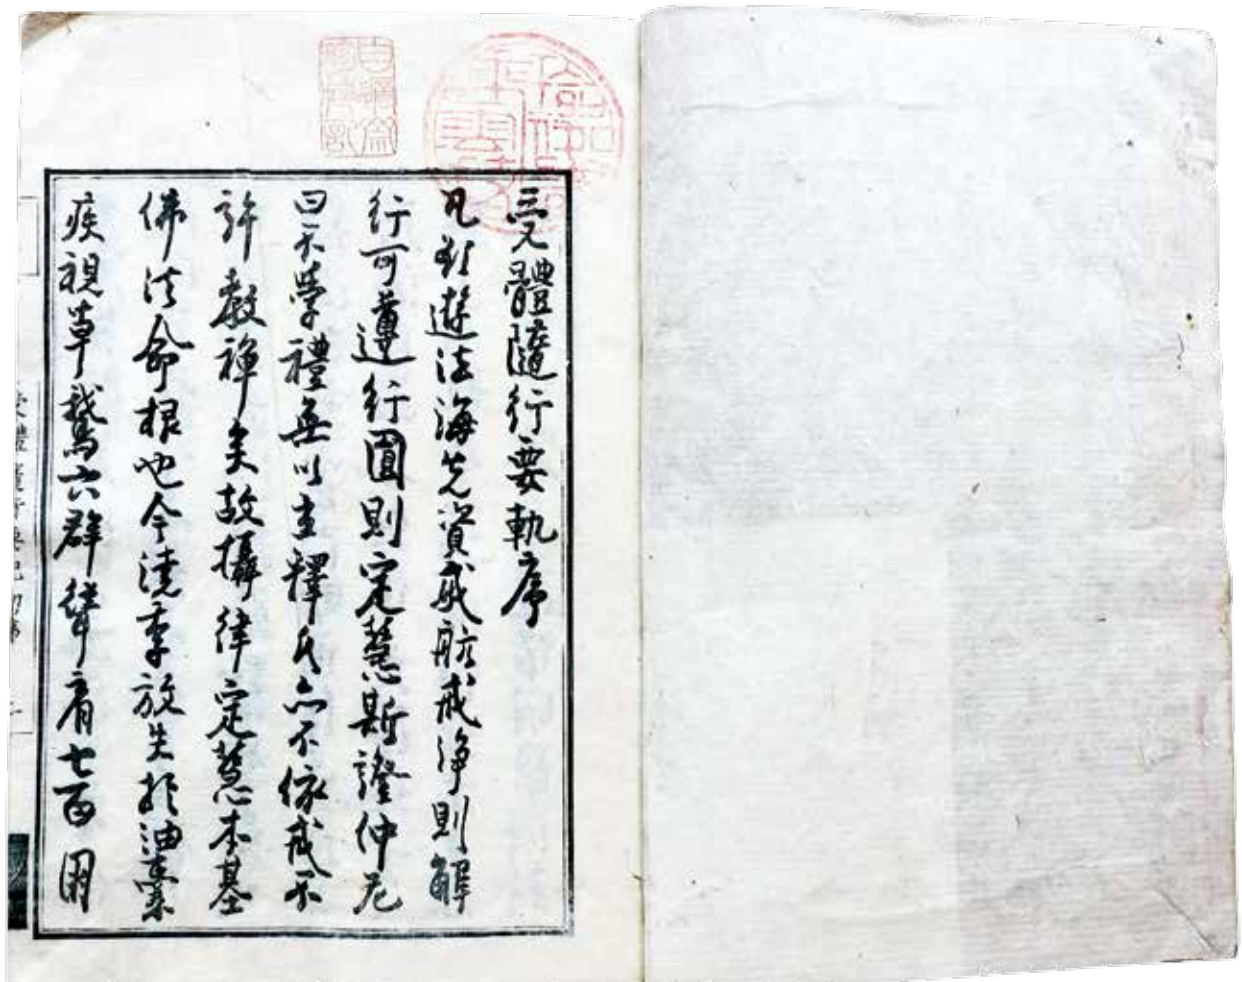 受體隨行要軌序
凡欲遊法海先資戒航戒淨則解
行可遵行圓則定慧斯證仲尼
曰不學禮無以立釋氏亦不依戒不
許教禪矣故攝律定慧本基
佛法命根也今澆季放失於油囊
疾視草鵞六群聳肩七百
受體隨行要軌